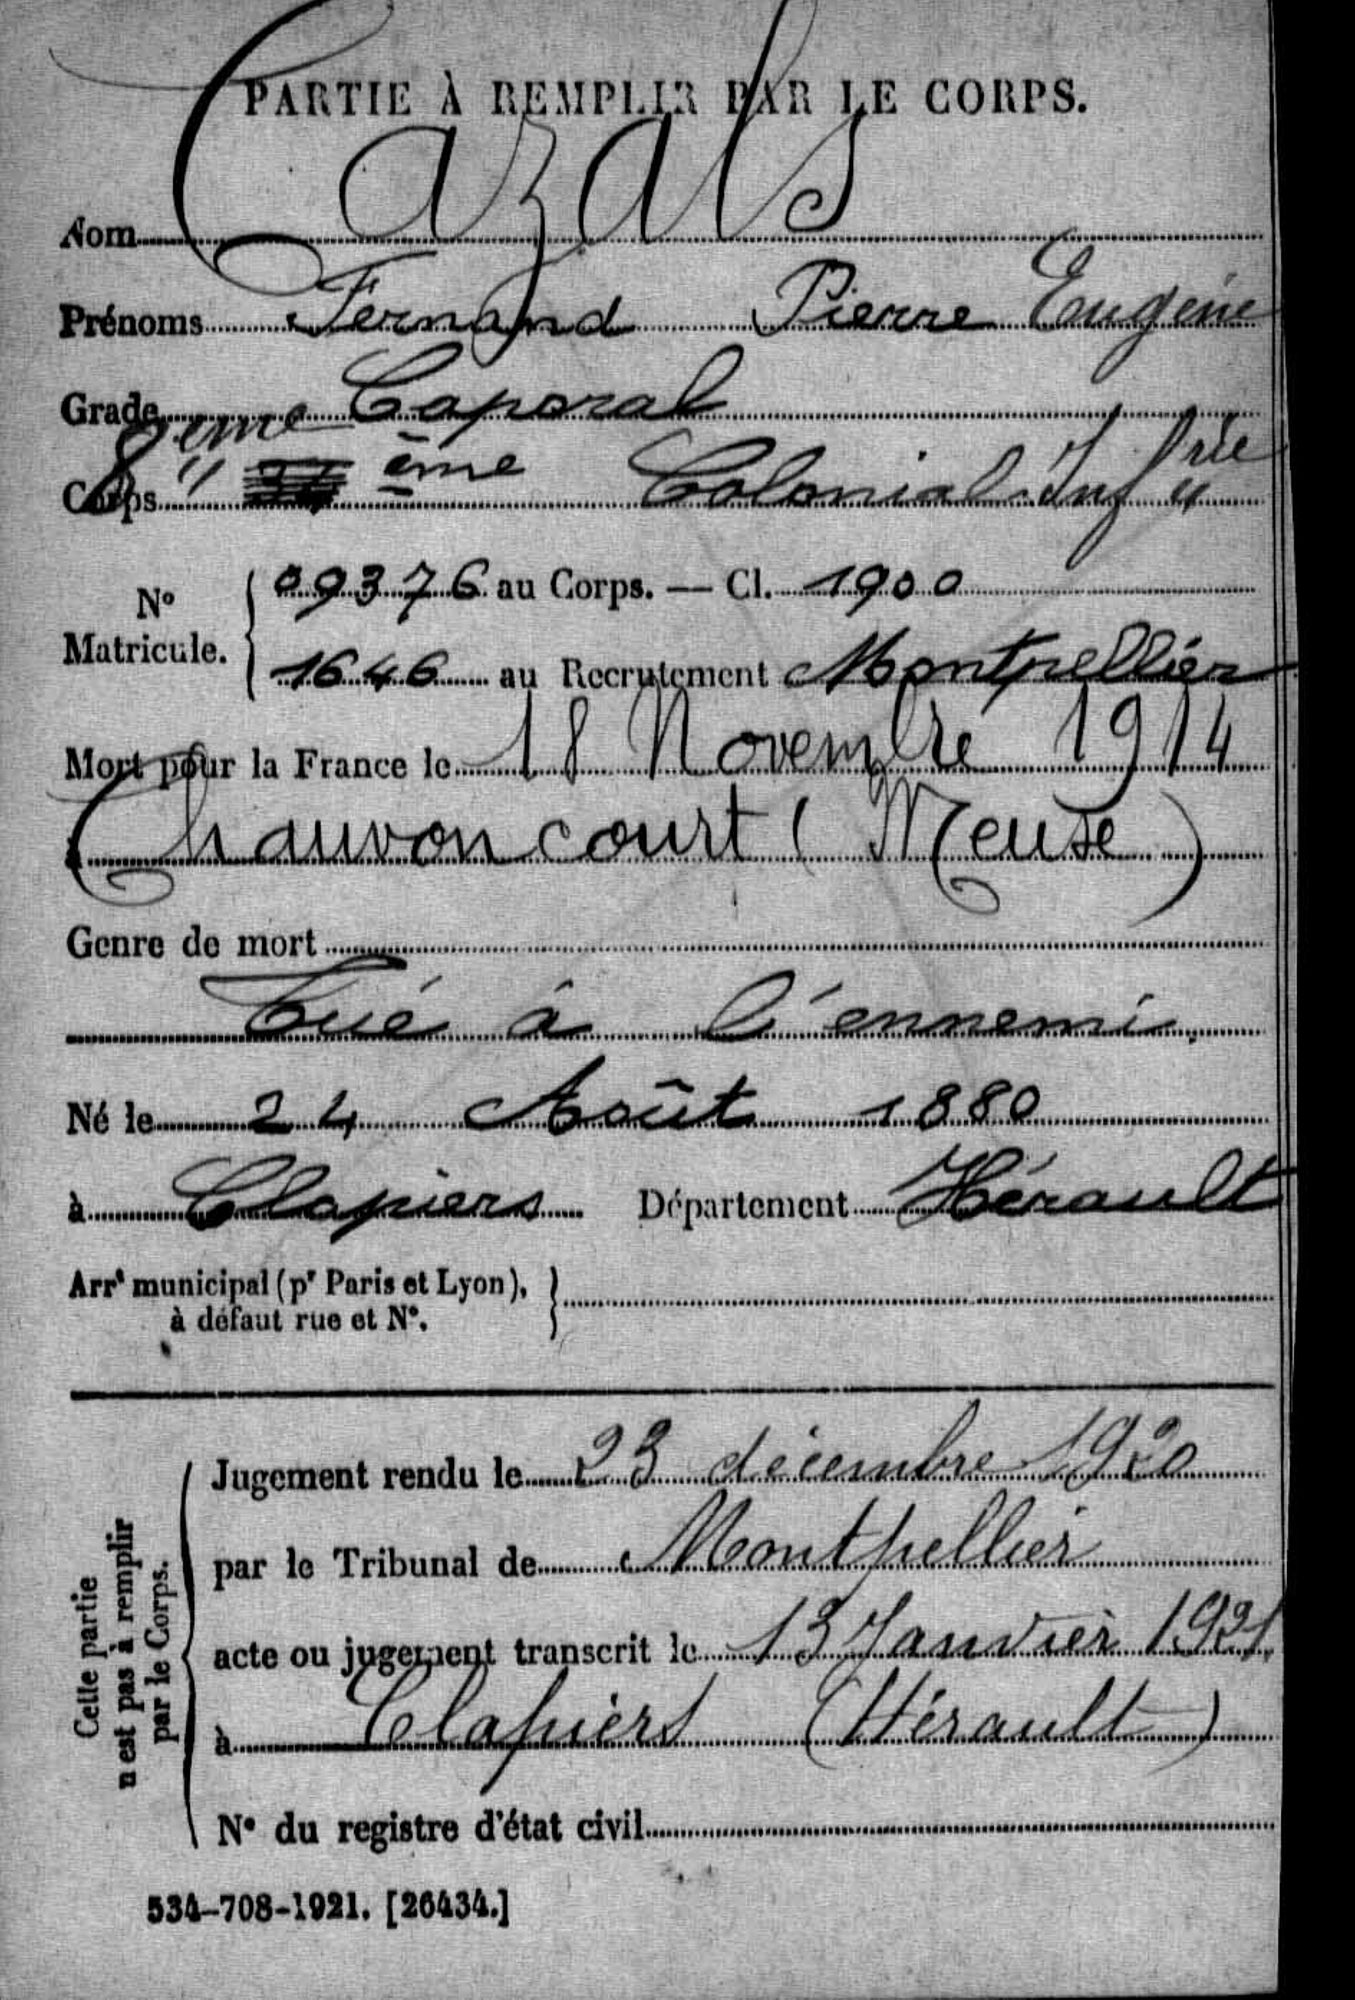 PARTIE À REMPLIR PAR LE CORPS.
Nom Cazals
Prénoms Fernand Pierre Eugène
Grade Caporal
Corps 8ème " ème Colonial Inf rie
N° Matricule. 09376 au Corps. — Cl. 1900
1646 au Recrutement Montpellier
Mort pour la France le 18 Novembre 1914
à Chauvoncourt (Meuse)
Genre de mort
Tué à l'ennemi
Né le 24 Août 1880
à Clapiers Département Hérault
Arrt municipal (pr Paris et Lyon),
à défaut rue et N°.
Cette partie
n'est pas à remplir
par le Corps.
Jugement rendu le 23 décembre 1920
par le Tribunal de Montpellier
acte ou jugement transcrit le 13 Janvier 1921
à Clapiers (Hérault)
N° du registre d'état civil
534-708-1921. [26434.]